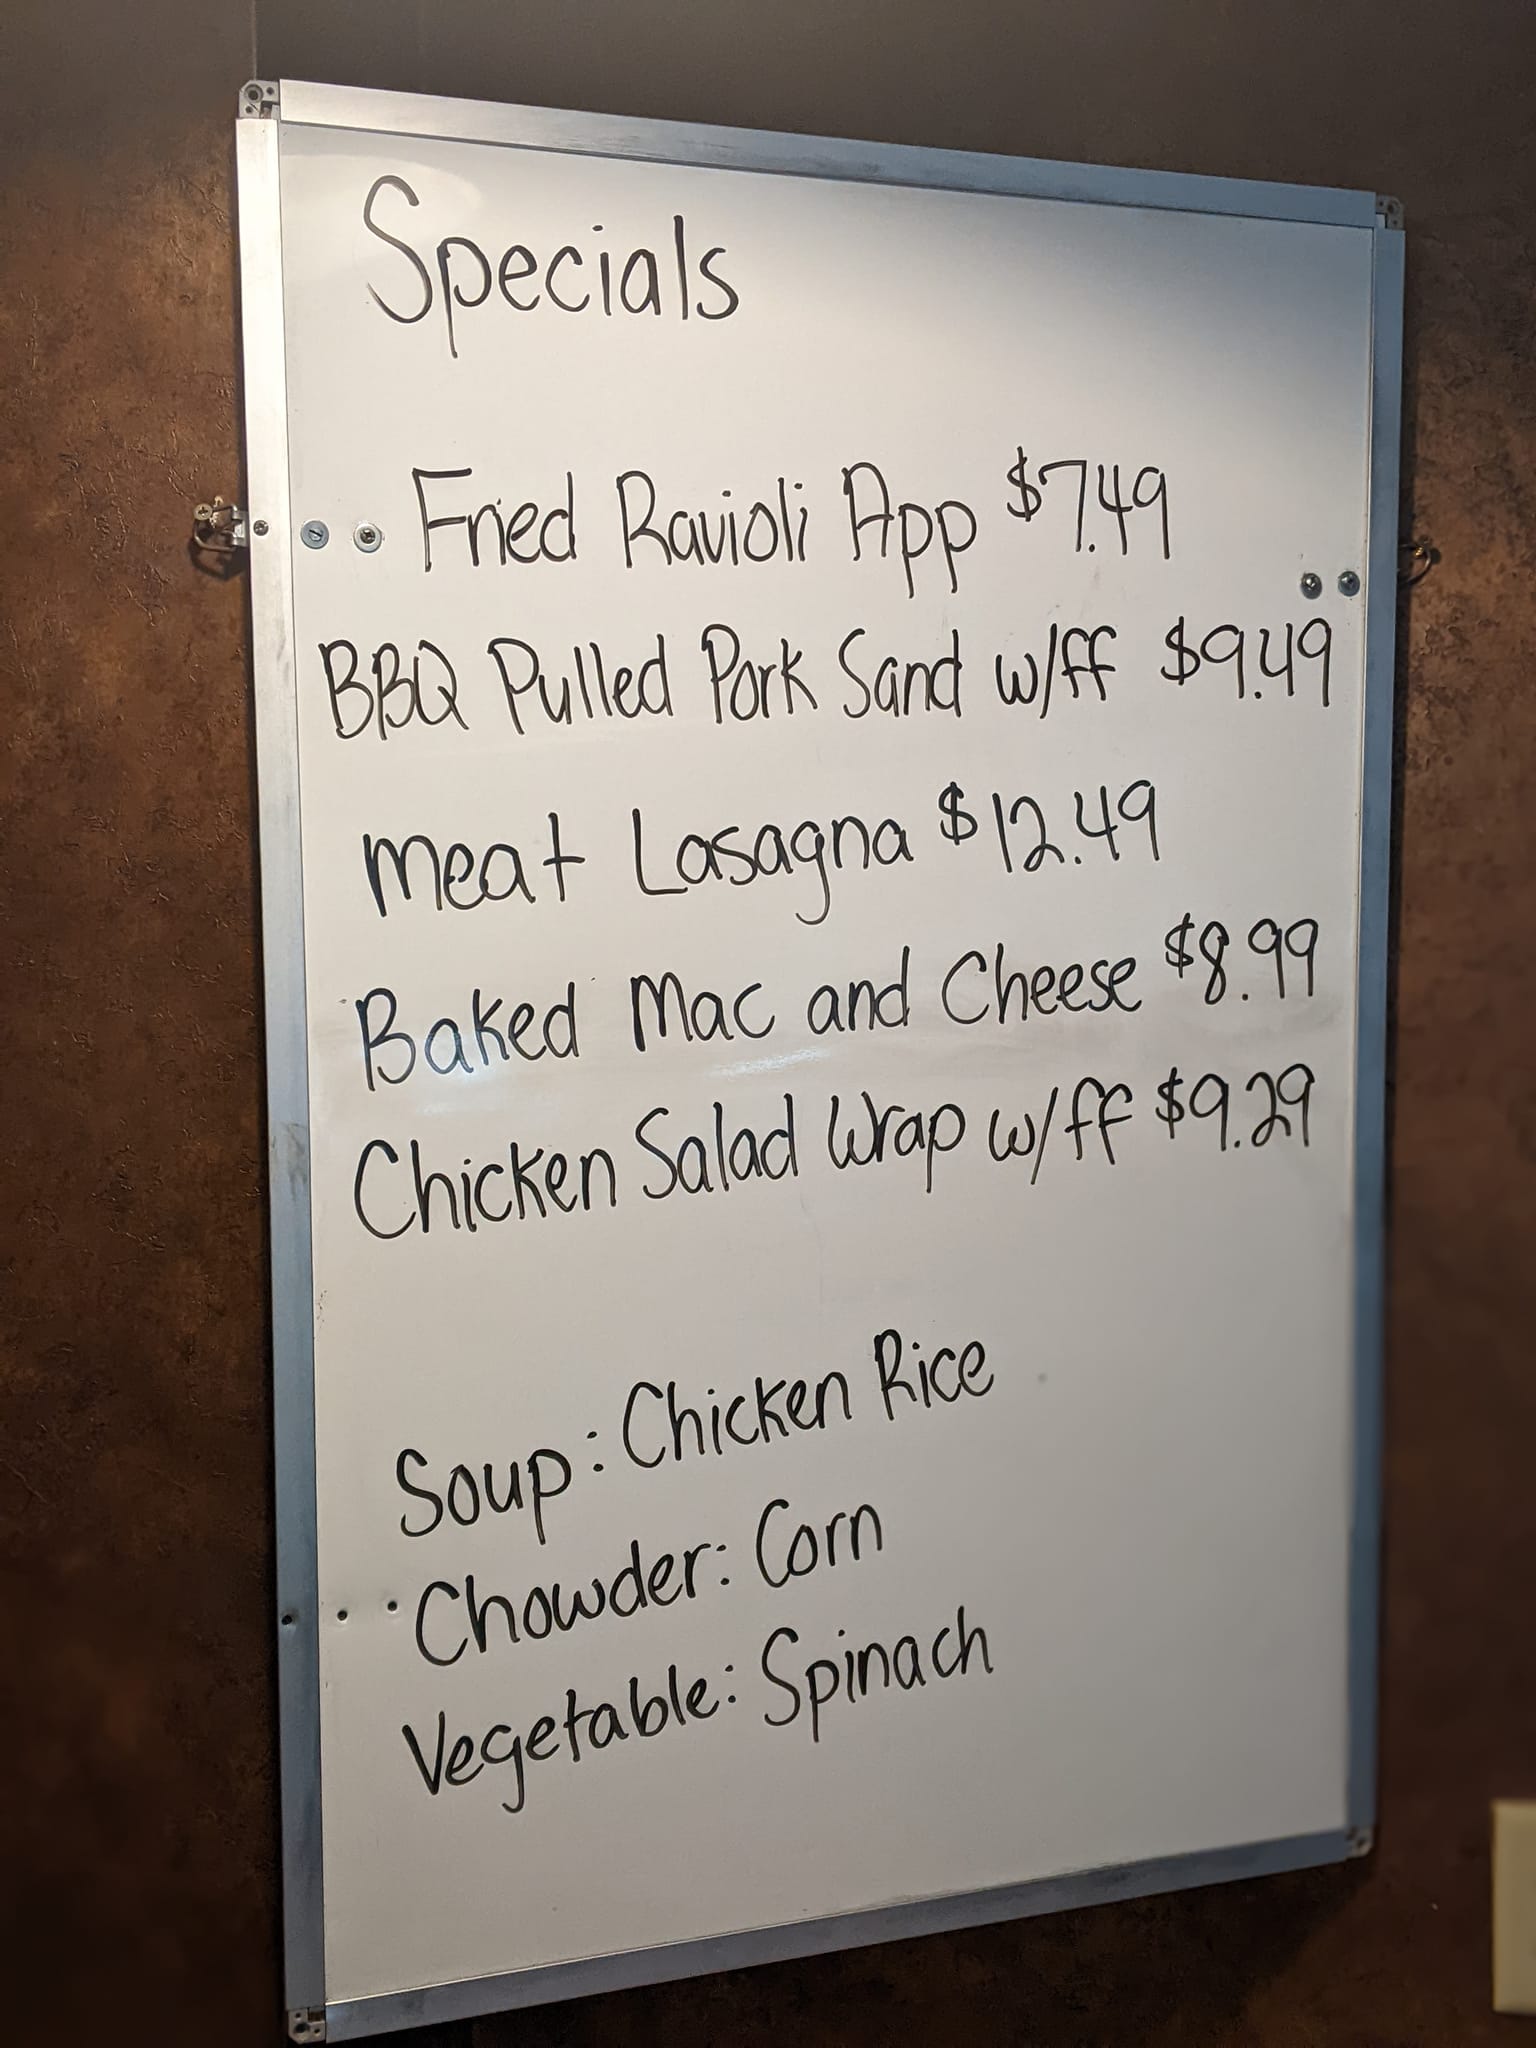 Specials
Fried Ravioli App $7.49
BBQ Pulled Pork Sand w/ff $9.49
Meat Lasagna $12.49
Baked Mac and Cheese $8.99
Chicken Salad Wrap w/ff $9.29
Soup: Chicken Rice
Chowder: Corn
Vegetable: Spinach